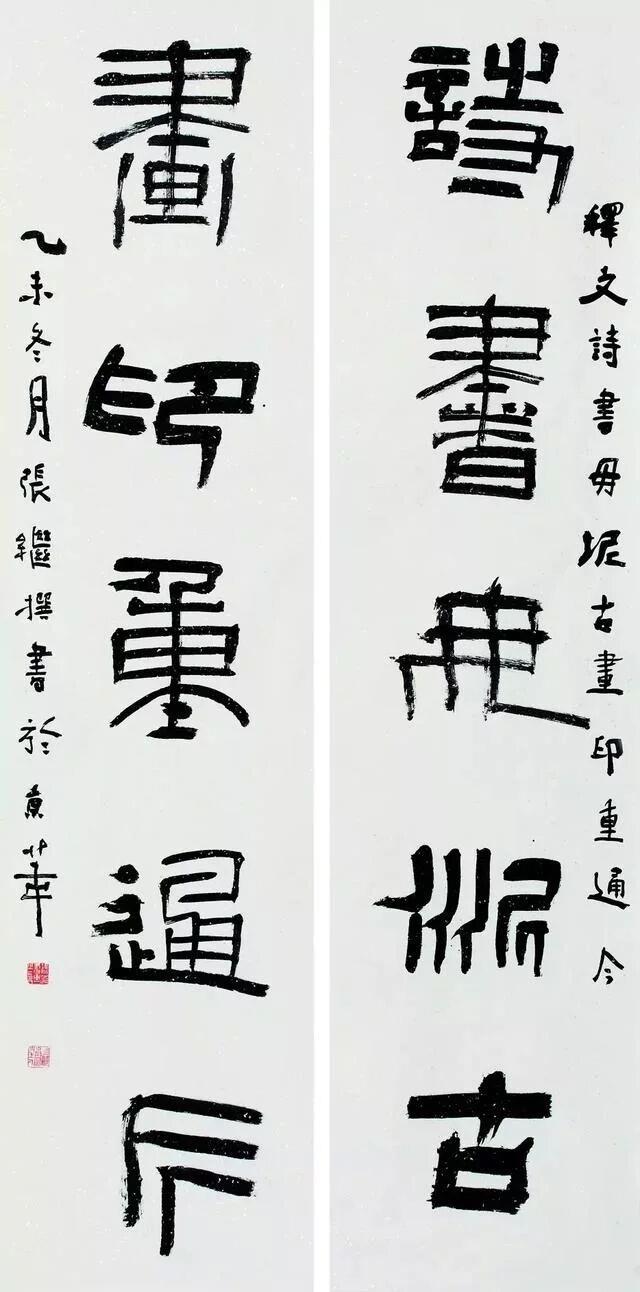 釋文詩書毋泥古畫印重通今
詩書毋泥古
畫印重通今
乙未冬月張繼撰書於京華